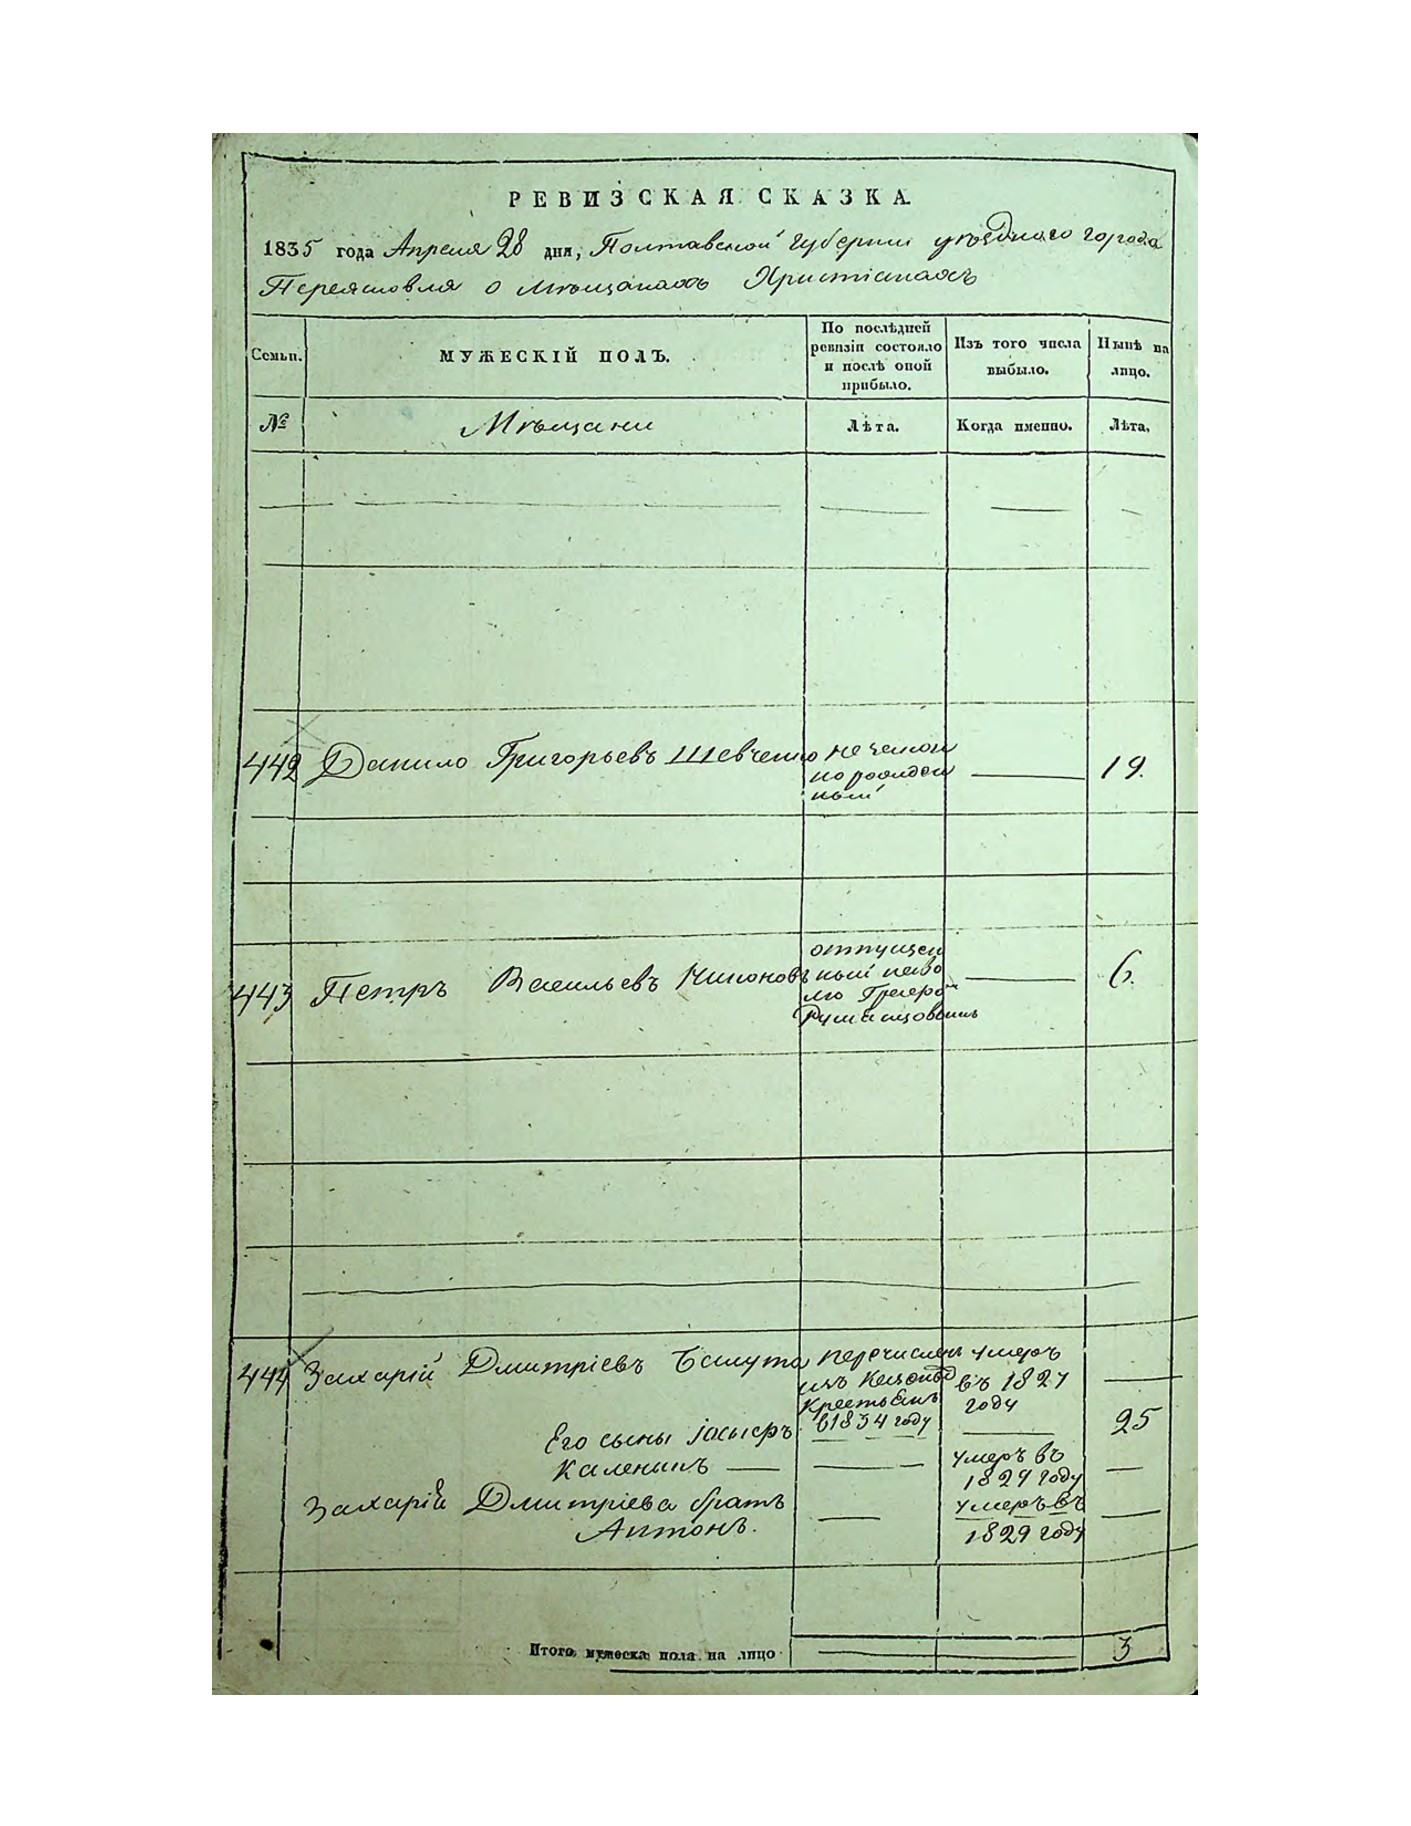 РЕВИЗСКАЯ СКАЗКА
1835 года Апреля 28 дня, Полтавской губернии уезднаго города
Переяславля о мѣщанахъ Христіанахъ
Семьи. МУЖЕСКІЙ ПОЛЪ. По послѣдней ревизіи состояло и послѣ оной прибыло. Изъ того числа выбыло. Нынѣ на лицо.
№ Мѣщани Лѣта. Когда именно. Лѣта.
442 Данило Григорьевъ Шевченко 19.
рожден
ный
443 Петръ Васильевъ отпущен 6.
ный
444 Захарій Дмитріевъ перечислен умеръ
изъ въ 1827
году
в 1834 году
Его сыны 25
Каленикъ умеръ въ
1829 году
Захарія Дмитріева братъ умеръ въ
Антонъ. 1829 году
Итого мужеска пола на лицо 3